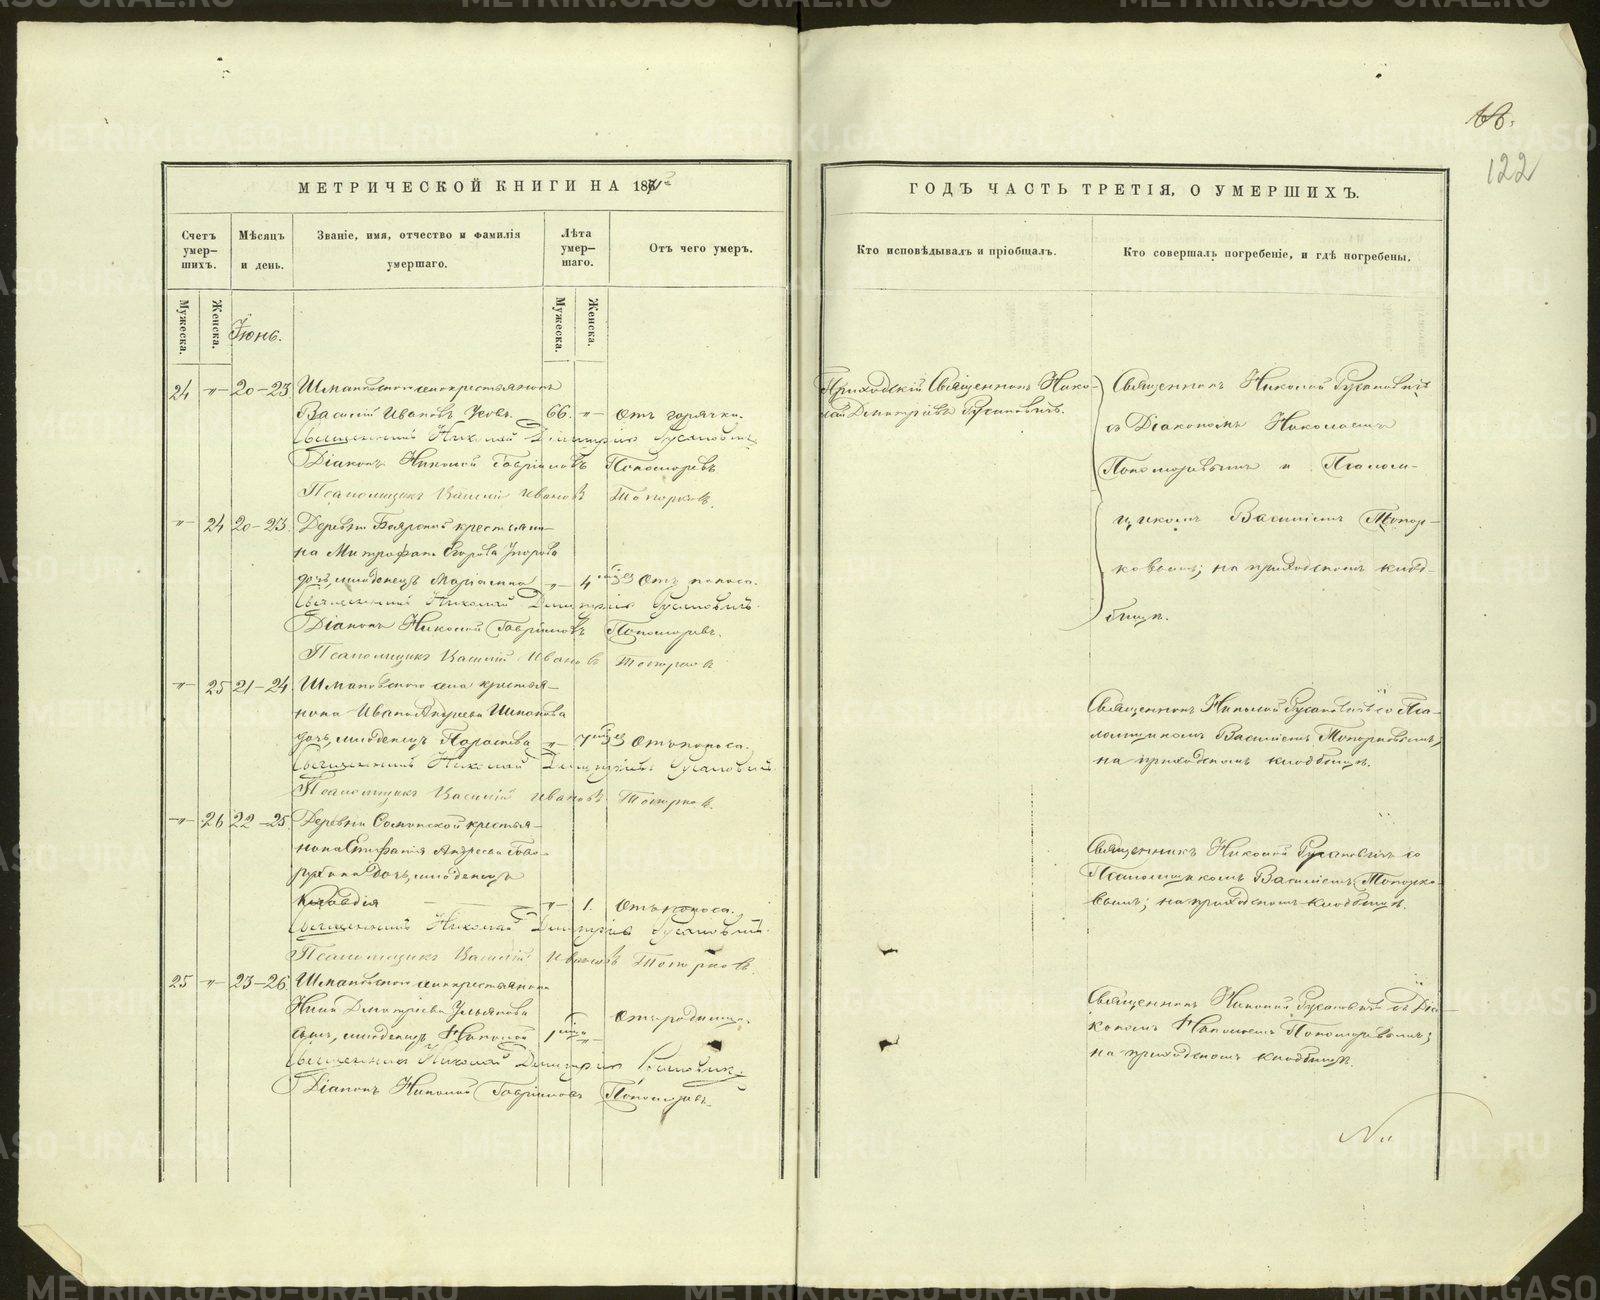 МЕТРИЧЕСКОЙ КНИГИ НА 187
Счетъ умер-шихъ.
Мѣсяцъ и день.
Званіе, имя, отчество и фамилія умершаго.
Лѣта умер-шаго.
Отъ чего умеръ.
Мужеска.
Женска.
Мужеска.
Женска.
Іюнь.
24 " 20–23 Шмаковскаго села крестьянинъ
Василій Ивановъ Усовъ. 66. " Отъ горячки.
Священникъ Николай Димитріевъ Русановичъ
Діаконъ Николай Гавріиловъ Пономаревъ
Псаломщикъ Василій Ивановъ Топорковъ.
" 24 20–23. Деревни Боярской крестьяни-
на Митрофана Егорова
дочь, младенецъ Маріамна " 4 мѣс. Отъ поноса.
Священникъ Николай Димитріевъ Русановичъ.
Діаконъ Николай Гавріиловъ Пономаревъ.
Псаломщикъ Василій Ивановъ Топорковъ
" 25 21–24. Шмаковскаго села крестья-
нина Ивана Андреева Шипанова
дочь, младенецъ Параскева " 7 мѣс. Отъ поноса.
Священникъ Николай Димитріевъ Русановичъ.
Псаломщикъ Василій Ивановъ Топорковъ.
" 26 22–25 Деревни крестья-
нина Епифанія Андреева
дочь, младенецъ
Клавдія " 1. Отъ поноса.
Священникъ Николай Димитріевъ Русановичъ.
Псаломщикъ Василій Ивановъ Топорковъ.
25 " 23–26. Шмаковскаго села крестьянина
Димитріева Ульянова
сынъ, младенецъ Николай 1 мѣс. " Отъ родимца.
Священникъ Николай Димитріевъ Русановичъ.
Діаконъ Николай Гавріиловъ Пономаревъ.
122
ГОДЪ ЧАСТЬ ТРЕТІЯ, О УМЕРШИХЪ.
Кто исповѣдывалъ и пріобщалъ.
Кто совершалъ погребеніе, и гдѣ погребены.
Приходскій Священникъ Нико-
лай Димитріевъ Русановичъ.
Священникъ Николай Русановичъ
съ Діакономъ Николаемъ
Пономаревымъ и Псалом-
щикомъ Василіемъ Топор-
ковымъ; на приходскомъ клад-
бищѣ.
Священникъ Николай Русановичъ со Пса-
ломщикомъ Василіемъ Топорковымъ;
на приходскомъ кладбищѣ.
Священникъ Николай Русановичъ со
Псаломщикомъ Василіемъ Топорко-
вымъ; на приходскомъ кладбищѣ.
Священникъ Николай Русановичъ съ Діа-
кономъ Николаемъ Пономаревымъ;
на приходскомъ кладбищѣ.
METRIKI.GASO-URAL.RU